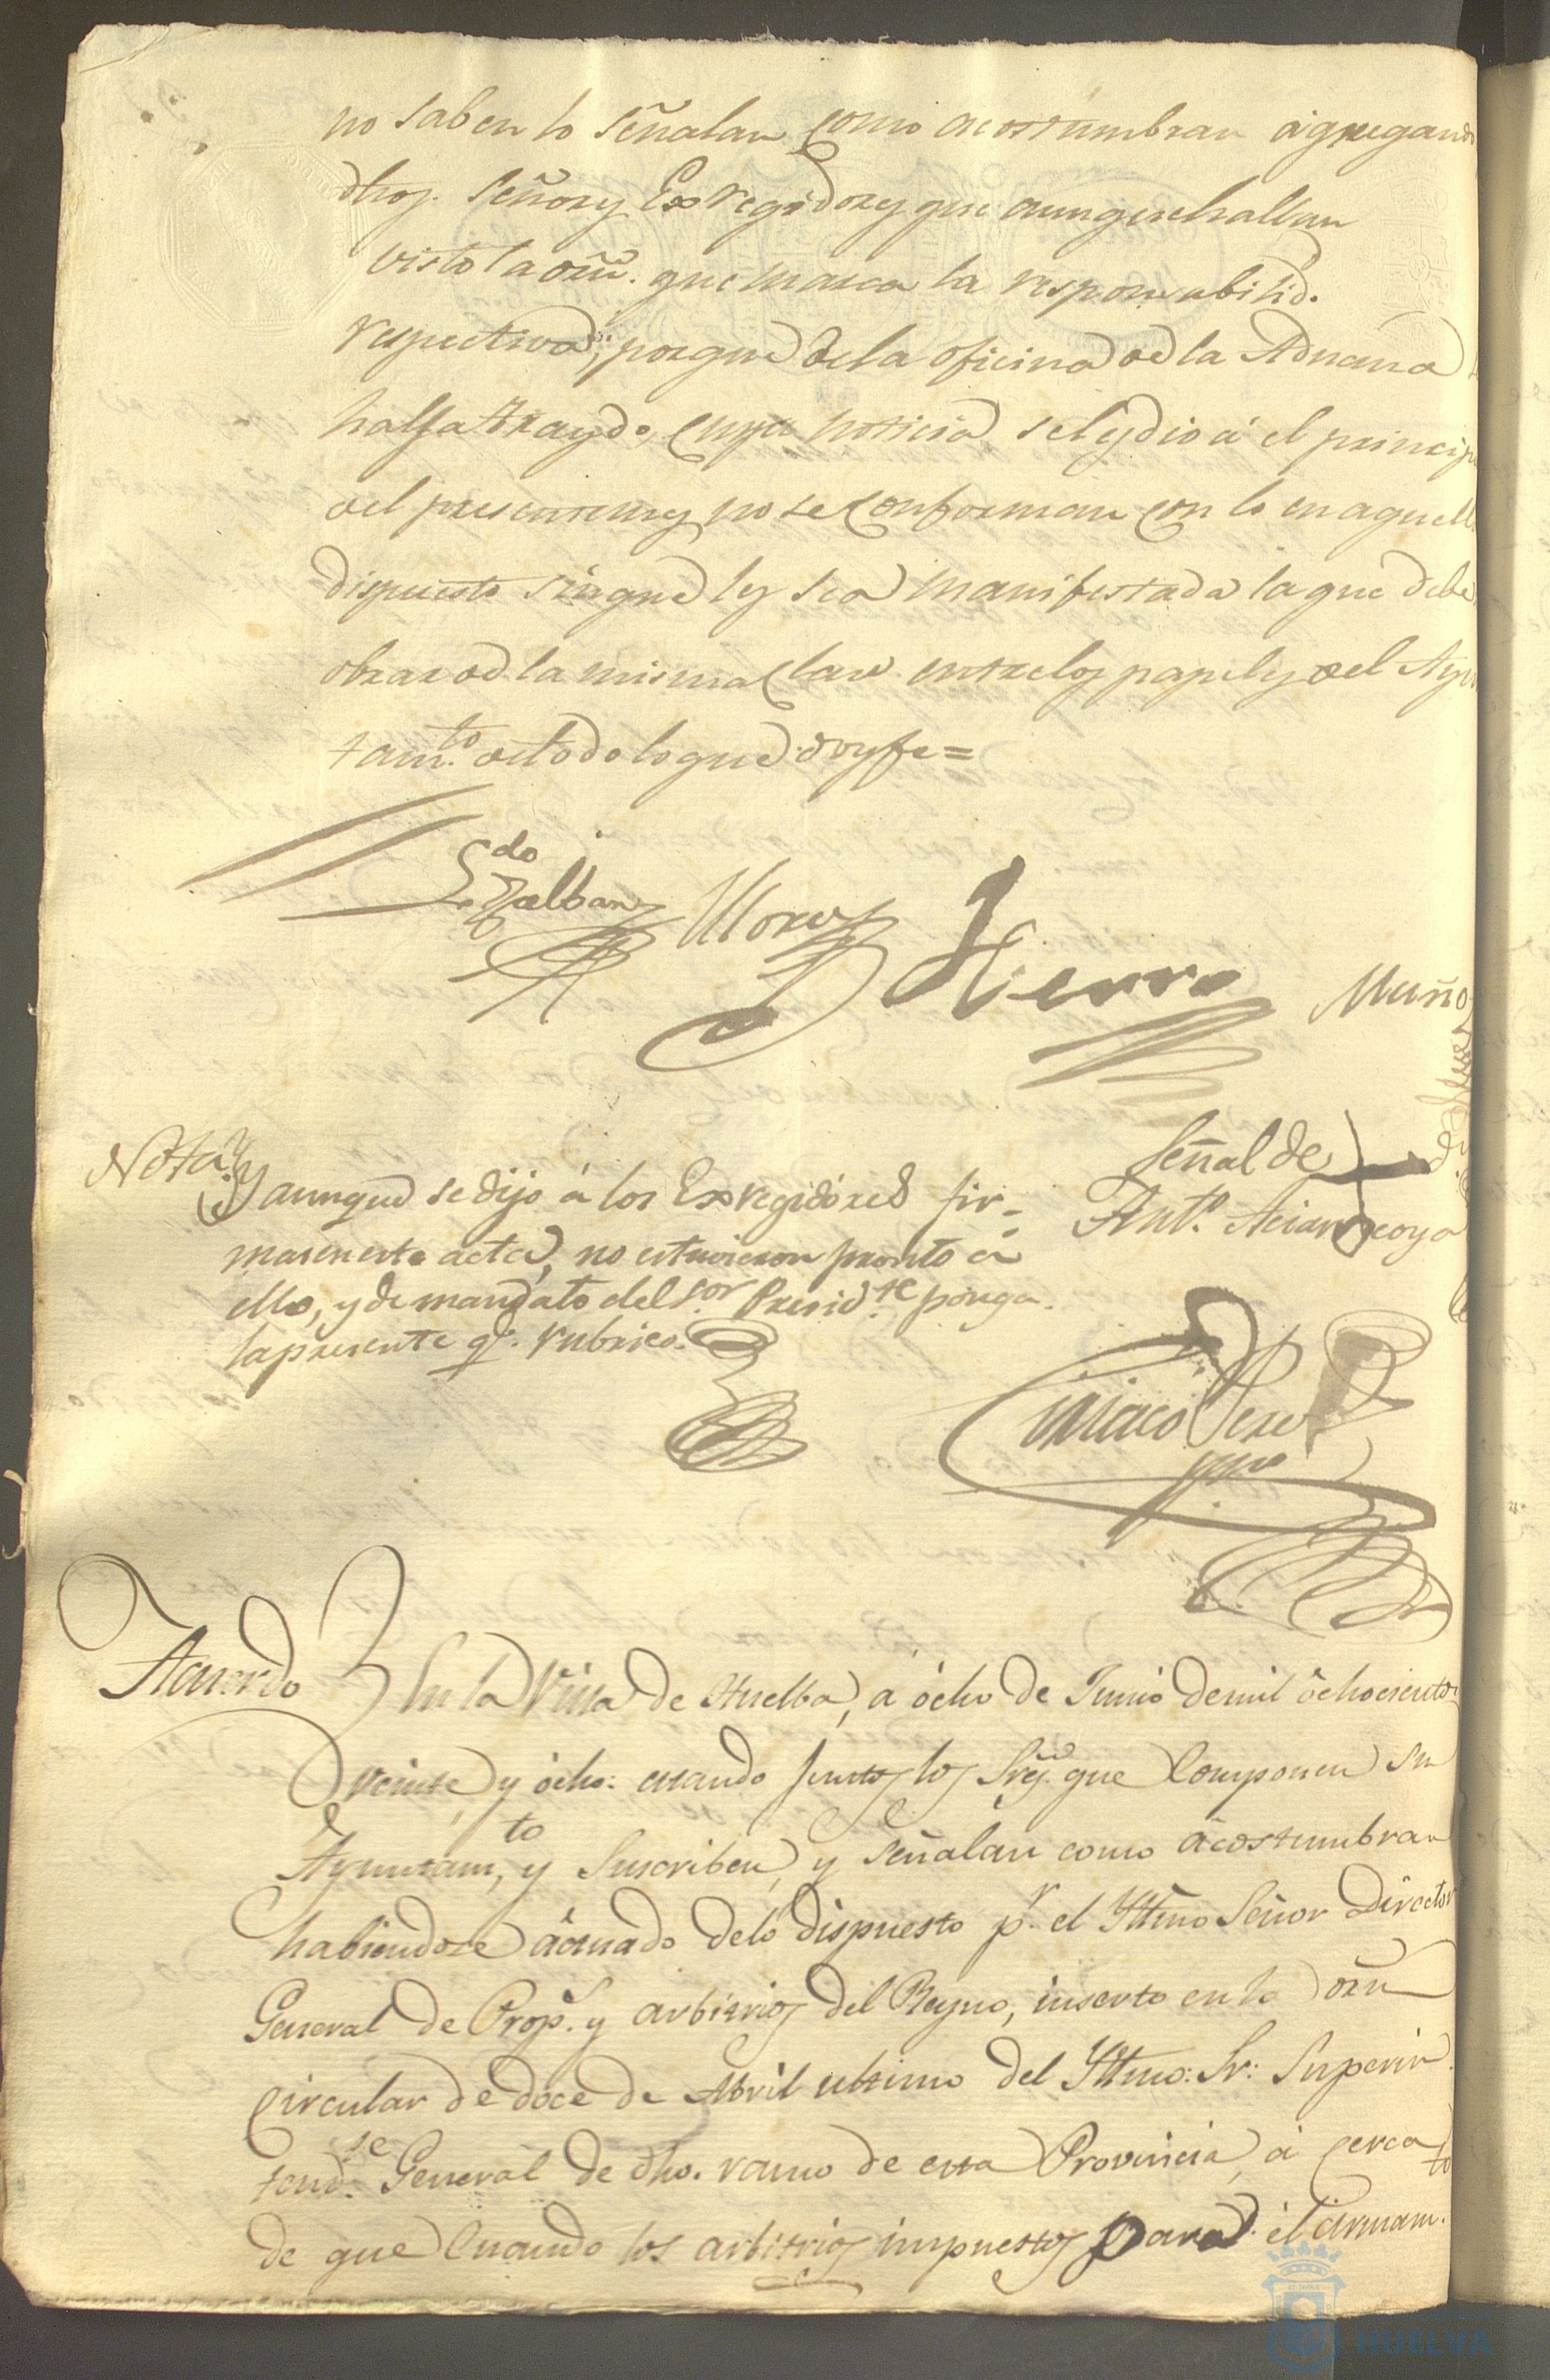 no saben lo señalan como acostumbran agregando
dhos. Señores Exregidores que aunque hallan
visto la orñ. que marca la responsabilid.
respectiva, porque de la oficina de la Aduana
halla traydo, cuya noticia se les dio á el princip
del presente mes, no se conforman con lo en aquell
dispuesto sin que les sea manifestada la que debe
obrar de la misma clase entre los papeles del Ayun
tam.to de todo lo que doy fe =
L.do Zalban
Mora
Hierro
Muño
Nota.
Señal de
Y aunque se dijo á los Exregidóres fir-
Ant.o
masen esta acta, no estuvieron pronto á
ello, y de mandato del S.or Presid.te pónga
la presente q.e rubrico.
Ciriaco Perez
Acuerdo
En la Villa de Huelba, á ócho de Junio de mil óchocientos
veinte y ócho: estando juntos los Sres. que componen su
Ayuntam.to, y suscriben, y señalan como acostumbran
habiendose áctuado de lo dispuesto p.r el Yltmo Señor Director
General de Prop.s y arbitrios del Reyno, inserto en la orñ
circular de doce de Abril ultimo del Yltmo: Sr: Superin
tend.te General de dho. ramo de esta Provincia, á cerca
de que cuando los arbitrios impuestos para el ármam.to
HUELVA